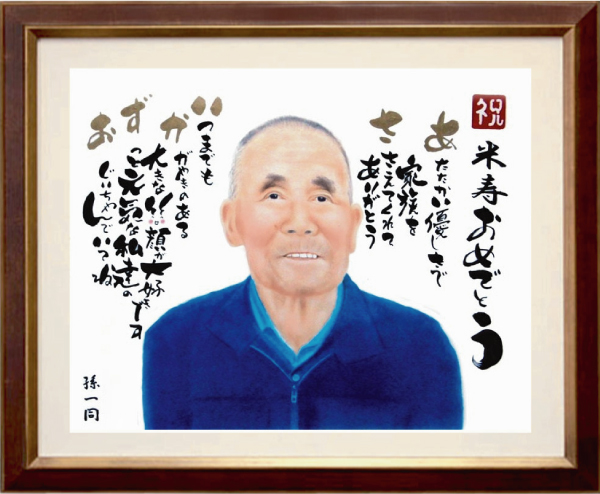 祝
米寿おめでとう
あたたかい優しさで
家族を
ささえてくれて
ありがとう
いつまでも
かがやきのある
大きな笑顔が大好きです
ずっと元気な私達の
おじいちゃんでいてね
孫一同